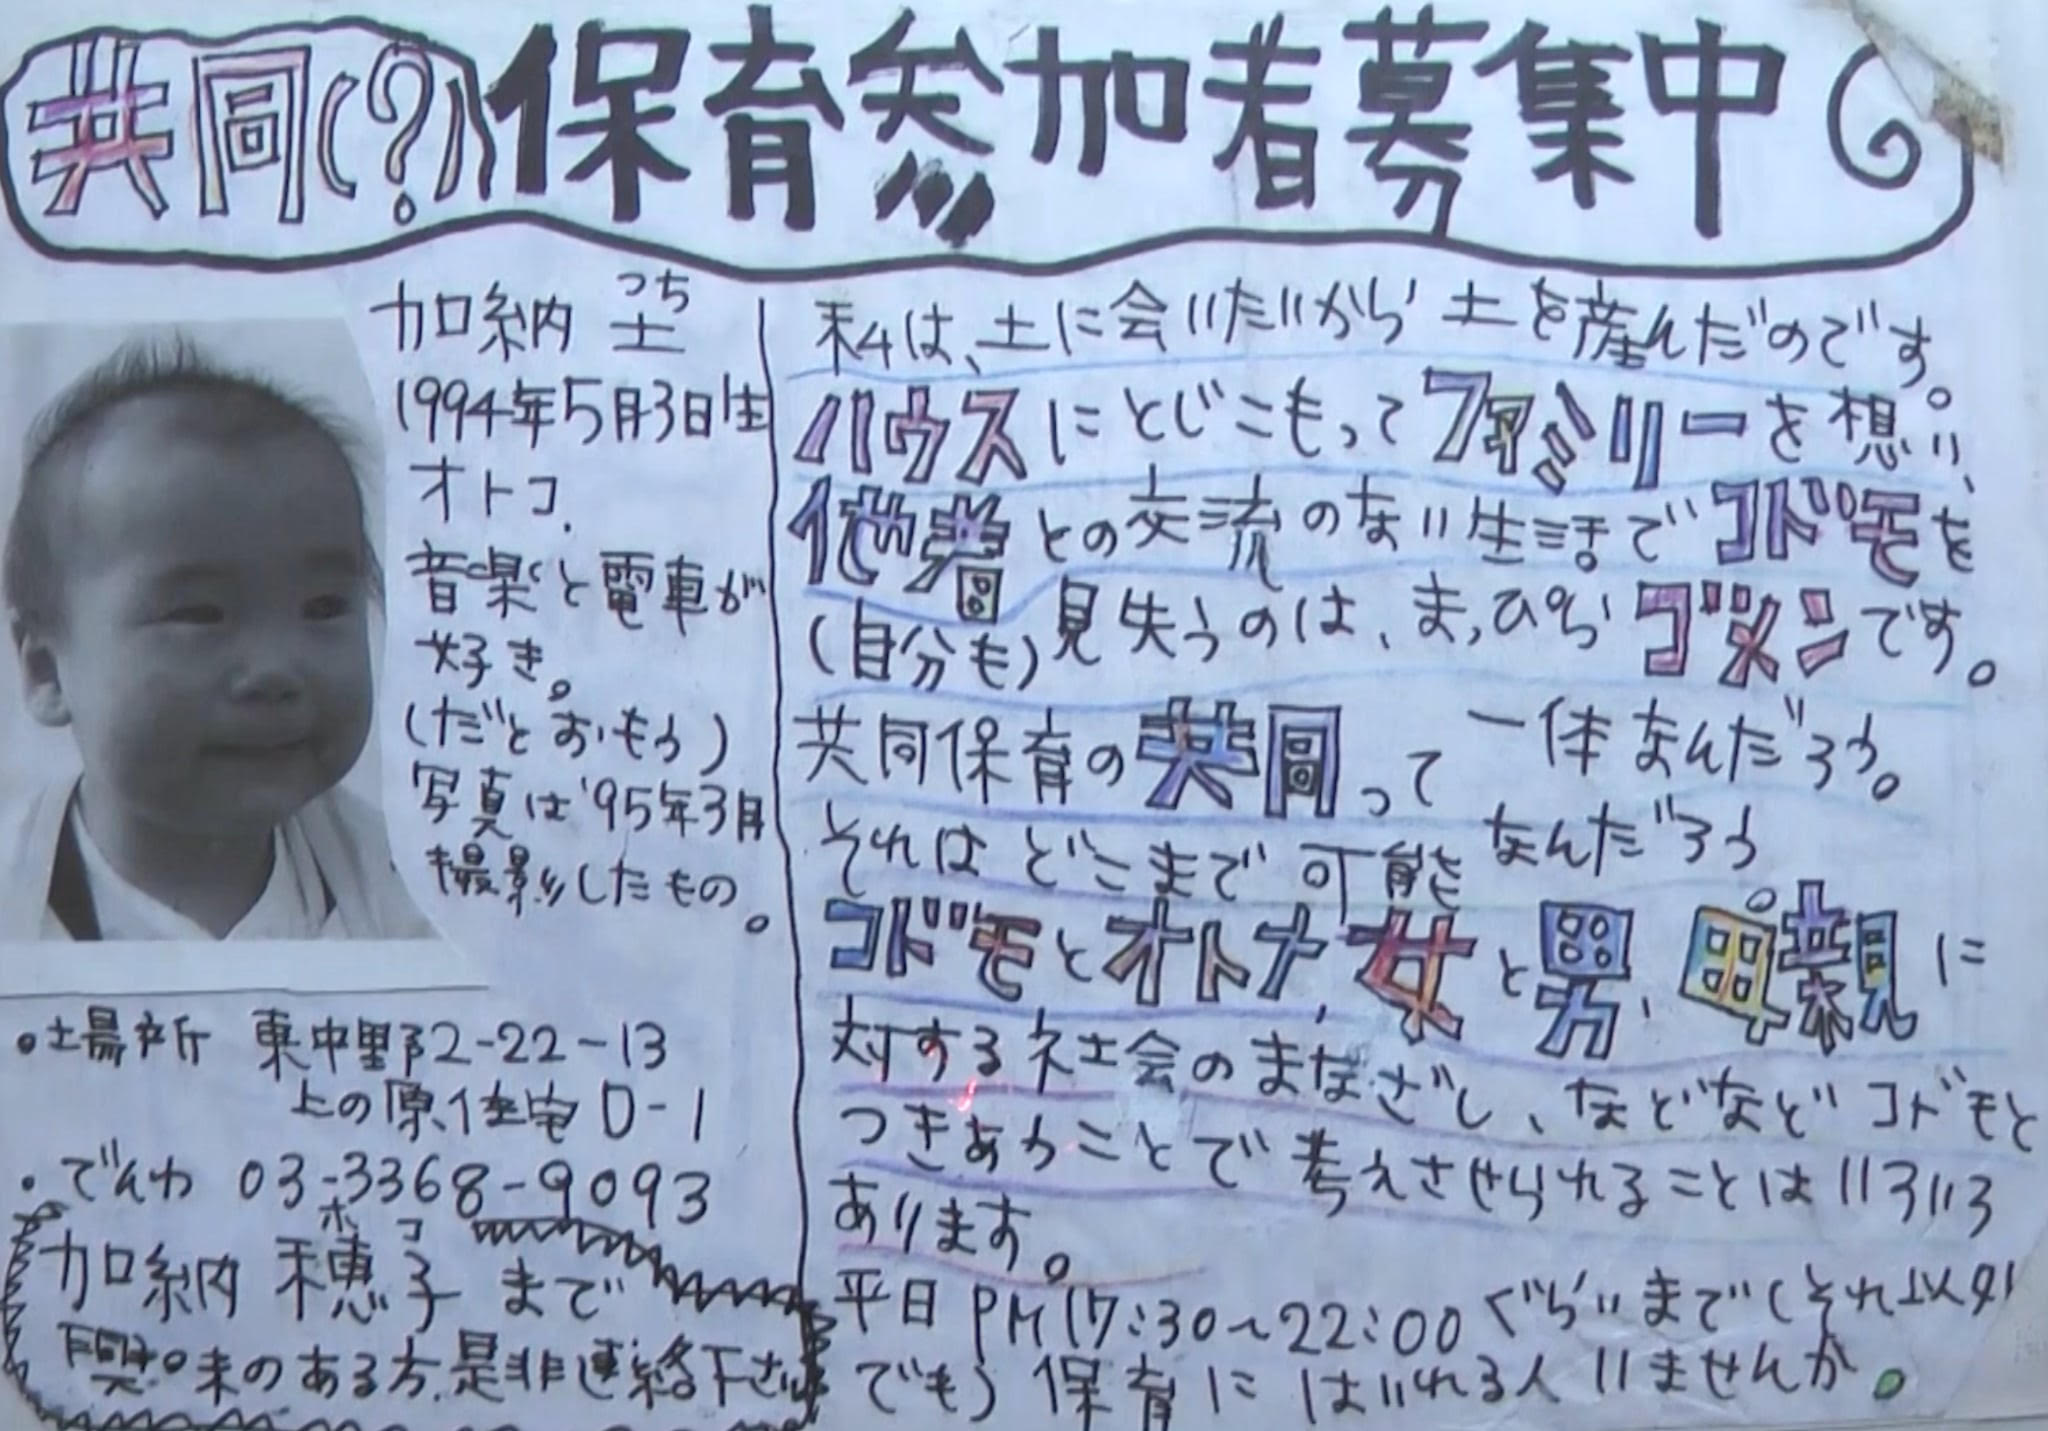 共同(?)保育参加者募集中
つち
加納 土
1994年5月3日生
オトコ.
音楽と電車が
好き。
(だとおもう)
写真は'95年3月
撮影したもの。
・場所 東中野2-22-13
上の原住宅D-1
・でんわ 03-3368-9093
ホ コ
加納 穂子まで
興味のある方、是非連絡下さい
私は、土に会いたいから土を産んだのです。
ハウスにとじこもってファミリーを想い、
他者との交流のない生活でコドモを
(自分も)見失うのは、まっぴらゴメンです。
共同保育の共同って一体なんだろう。
それはどこまで可能なんだろう。
コドモとオトナ、女と男、母親に
対する社会のまなざし、などなどコドモと
つきあうことで考えさせられることはいろいろ
あります。
平日PM17:30~22:00ぐらいまで(それ以外
でも)保育にはいれる人いませんか。